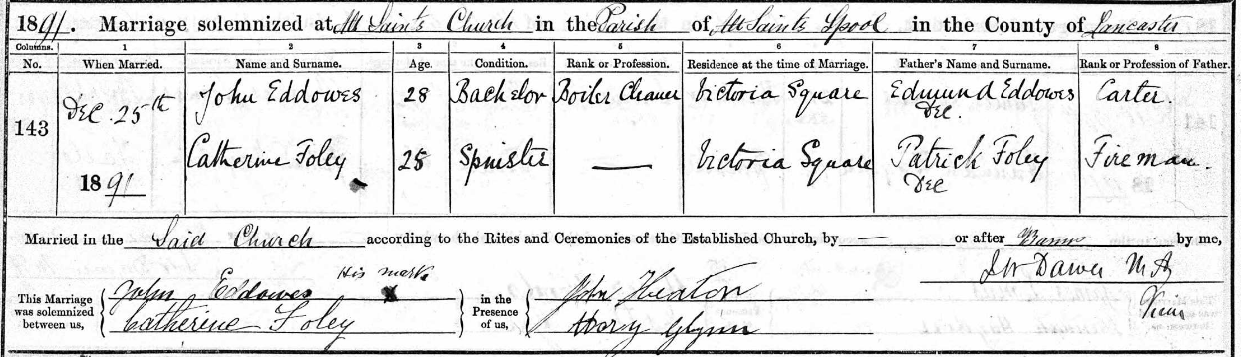 1891. Marriage solemnized at All Saints Church in the Parish of All Saints Lpool in the County of Lancaster
Columns. 1 2 3 4 5 6 7 8
No. When Married. Name and Surname. Age. Condition. Rank or Profession. Residence at the time of Marriage. Father's Name and Surname. Rank or Profession of Father.
143 Dec. 25th 1891
John Eddowes 28 Bachelor Boiler Cleaner Victoria Square Edmund Eddowes Dec. Carter.
Catherine Foley 25 Spinster — Victoria Square Patrick Foley Dec Fireman.
Married in the Said Church according to the Rites and Ceremonies of the Established Church, by — or after Banns by me,
This Marriage was solemnized between us, John Eddowes His mark X
Catherine Foley
in the Presence of us, John Heaton
Harry Glynn
M A